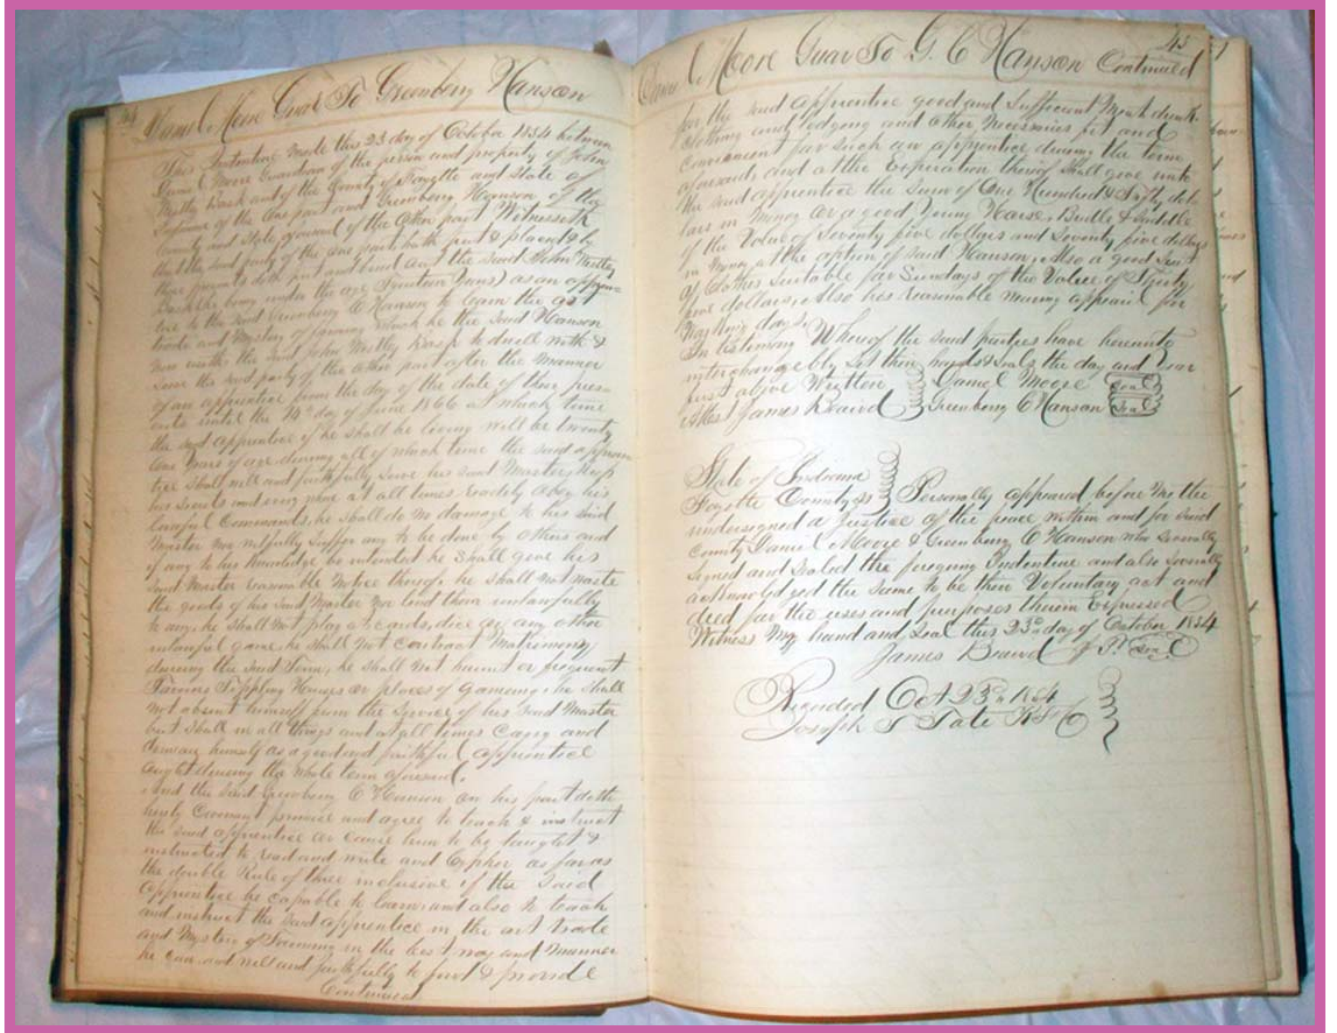 44 Daniel Moore Guar To Greenberry Hanson
This Indenture Made this 23 day of October 1854 between
Daniel Moore Guardian of the person and property of John
Westly Rask and of the County of Fayette and State of
Indiana of the One part and Greenberry Hanson of the
County and State aforesaid of the Other part Witnesseth
that the said party of the One part hath put & placed & by
these presents doth put and bind out the said John Westley
Rask he being under the age fourteen years) as an appren
tice to the said Greenberry C Hanson to learn the art
trade and Mystery of farming which he the said Hanson
now the said John Westley Rask to dwell with &
serve the said party of the Other part after the Manner
of an apprentice from the day of the date of these presen
ents until the 14th day of June 1866 at which time
the said apprentice if he shall be living will be twenty
One Years of age during all of which time the said appren
tice shall well and faithfully serve his said Master, Keep
his Secrets and every where at all times readily Obey his
Lawful Commands, he shall do no damage to his said
Master nor wilfully suffer any to be done by others and
if any to his Knowledge be intended he shall give his
said Master reasonable Notice thereof, he shall not waste
the goods of his said Master nor lend them unlawfully
to any, he shall not play at cards, dice or any other
unlawful game, he shall not contract Matrimony
during the said term, he shall not haunt or frequent
Taverns Tippling Houses or places of gameing, he shall
not absent himself from the Service of his said Master
but shall in all things and at all times Carry and
demean himself as a good and faithful apprentice
ought during the whole term aforesaid.
And the said Greenberry C Hanson on his part doth
hereby Covenant promise and agree to teach & instruct
the said apprentice or cause him to be taught &
instructed to read and write and Cypher as far as
the double Rule of three inclusive if the said
Apprentice be capable to learn and also to teach
and instruct the said apprentice in the art trade
and Mystery of Farming in the best way and Manner
he can and well and faithfully to find & provide
Continued
45
Daniel Moore Guar To G. C Hanson Continued
for the said apprentice good and sufficient Meat drink
Clothing and lodging and other Necessaries fit and
Convenient for such an apprentice during the term
aforesaid, and at the Expiration thereof shall give unto
the said apprentice the Sum of One Hundred & Fifty dol
lars in Money or a good Young Horse, Bridle & Saddle
of the Value of Seventy five dollars and Seventy five dollars
in Money at the option of said Hanson, Also a good Suit
of Clothes Suitable for Sundays of the Value of
five dollars, Also his reasonable wearing apparil for
Working days.
In testimony Whereof the said parties have hereunto
interchangebly Set their hands & seals the day and Year
first above Written Daniel Moore Seal
Attest James Beard Greenberry C Hanson Seal
State of Indiana
Fayette County ss Personally appeared before me the
undersigned a Justice of the peace within and for said
County Daniel Moore & Greenberry C Hanson who severally
Signed and Sealed the foregoing Indenture and also Severally
acknowledged the same to be their Voluntary act and
deed for the uses and purposes therein Expressed
Witness My hand and Seal this 23d day of October 1854
James Beard J P Seal
Recorded Oct 23d 1854
Joseph T Tate R F C